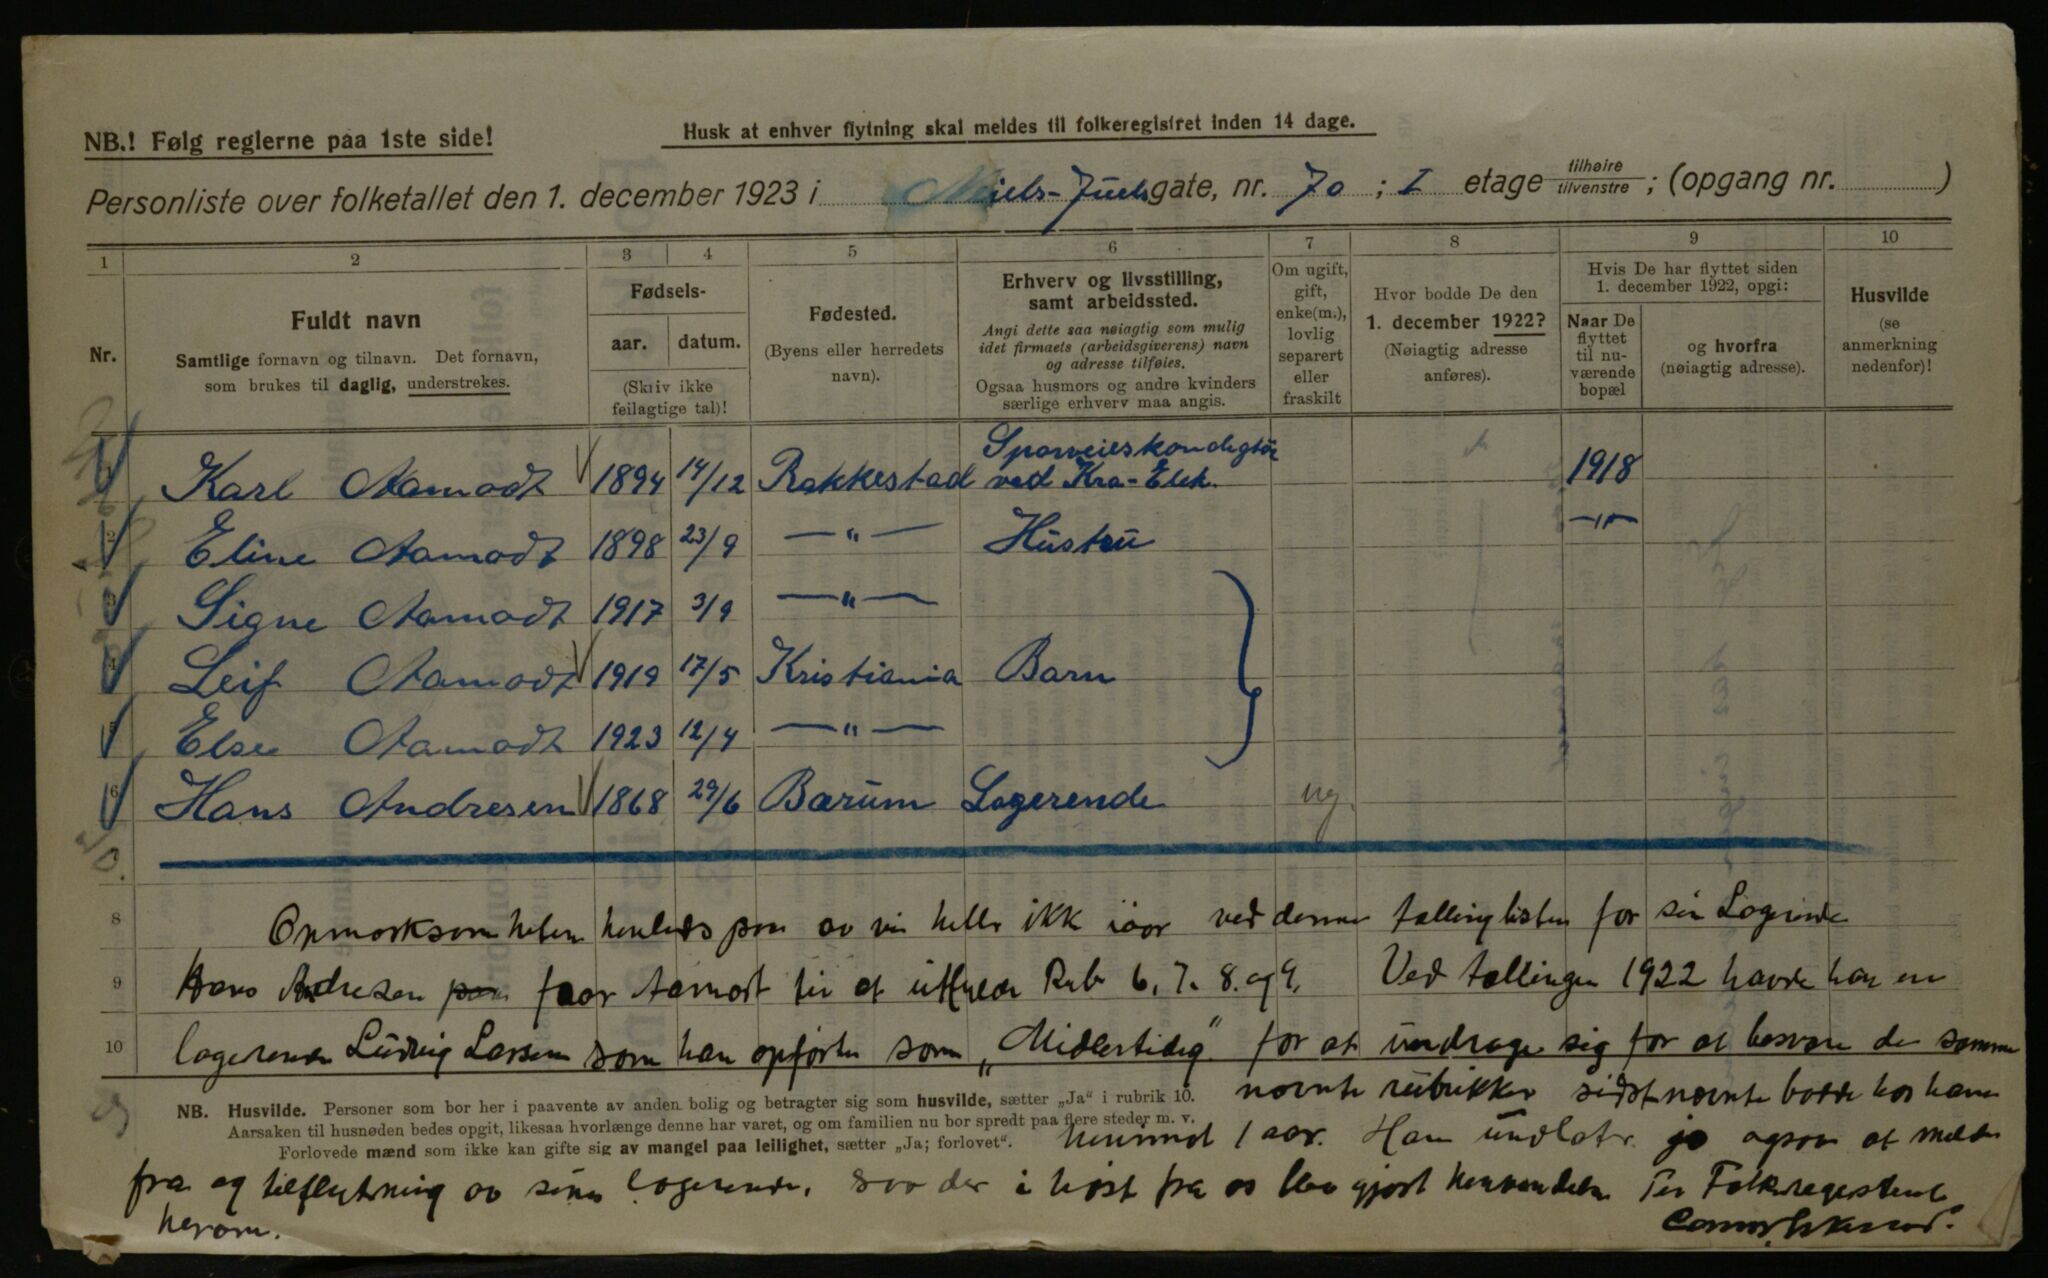 NB.! Følg reglerne paa 1ste side!
Husk at enhver flytning skal meldes til folkeregistret inden 14 dage.
Personliste over folketallet den 1. december 1923 i Niels-Juels gate, nr. 70 ; I etage tilhøire / tilvenstre ; (opgang nr. )
1 2 3 4 5 6 7 8 9 10
Nr.
Fuldt navn
Samtlige fornavn og tilnavn. Det fornavn,
som brukes til daglig, understrekes.
Fødsels-
aar. datum.
(Skriv ikke
feilagtige tal)!
Fødested.
(Byens eller herredets
navn).
Erhverv og livsstilling,
samt arbeidssted.
Angi dette saa nøiagtig som mulig
idet firmaets (arbeidsgiverens) navn
og adresse tilføies.
Ogsaa husmors og andre kvinders
særlige erhverv maa angis.
Om ugift,
gift,
enke(m.),
lovlig
separert
eller
fraskilt
Hvor bodde De den
1. december 1922?
(Nøiagtig adresse
anføres).
Hvis De har flyttet siden
1. december 1922, opgi:
Naar De
flyttet
til nu-
værende
bopæl
og hvorfra
(nøiagtig adresse).
Husvilde
(se
anmerkning
nedenfor)!
Sporveiskonduktör
1 Karl Aamodt 1894 14/12 Rakkestad ved Kra-Elek. 1918
2 Eline Aamodt 1898 23/9 —"— Hustru —"—
3 Signe Aamodt 1917 3/9 —"—
4 Leif Aamodt 1919 17/5 Kristiania Barn
5 Else Aamodt 1923 12/4 —"—
6 Hans Andresen 1868 29/6 Bærum Logerende ug.
8 Opmerksomheten henledes paa av vi heller ikke iaar ved denne tællingslisten for sin Logerende
9 Hans Andresen faar Aamodt til at utfylde Rub 6, 7. 8. og 9. Ved tællingen 1922 havde han en
10 logerende Ludvig Larsen som han opførte som „Midlertidig" for at undrage sig for at besvare de samme
nævnte rubrikker sidstnævnte bodde hos ham
NB. Husvilde. Personer som bor her i paavente av anden bolig og betragter sig som husvilde, sætter „Ja" i rubrik 10.
Aarsaken til husnøden bedes opgit, likesaa hvorlænge denne har varet, og om familien nu bor spredt paa flere steder m. v.
Forlovede mænd som ikke kan gifte sig av mangel paa leilighet, sætter „Ja; forlovet".
henimot 1 aar. Han undlater jo ogsaa at melde
fra og tilflytning av sine logerende, saa der i høst fra os blev gjort henvendelse til Folkeregisteret
herom.